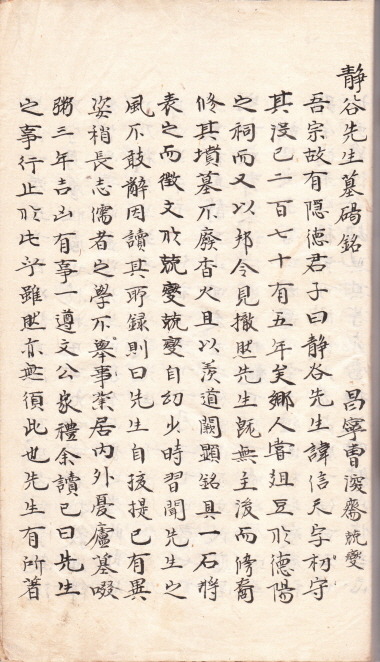 靜谷先生墓碣銘 昌寧曺深齋兢燮
吾宗故有隱德君子曰靜谷先生諱信天字初守
其沒已二百七十有五年矣鄉人嘗俎豆於德陽
之祠而又以邦令見撤然先生旣無主後而傍裔
修其墳墓不廢香火且以羨道闕顯銘具一石將
表之而徵文於兢燮兢燮自幼少時習聞先生之
風不敢辭因讀其所錄則曰先生自孩提已有異
姿稍長志儒者之學不擧事業居內外憂廬墓啜
粥三年吉凶有事一遵文公家禮余讀已曰先生
之事行止於此乎雖然亦無須此也先生有所著